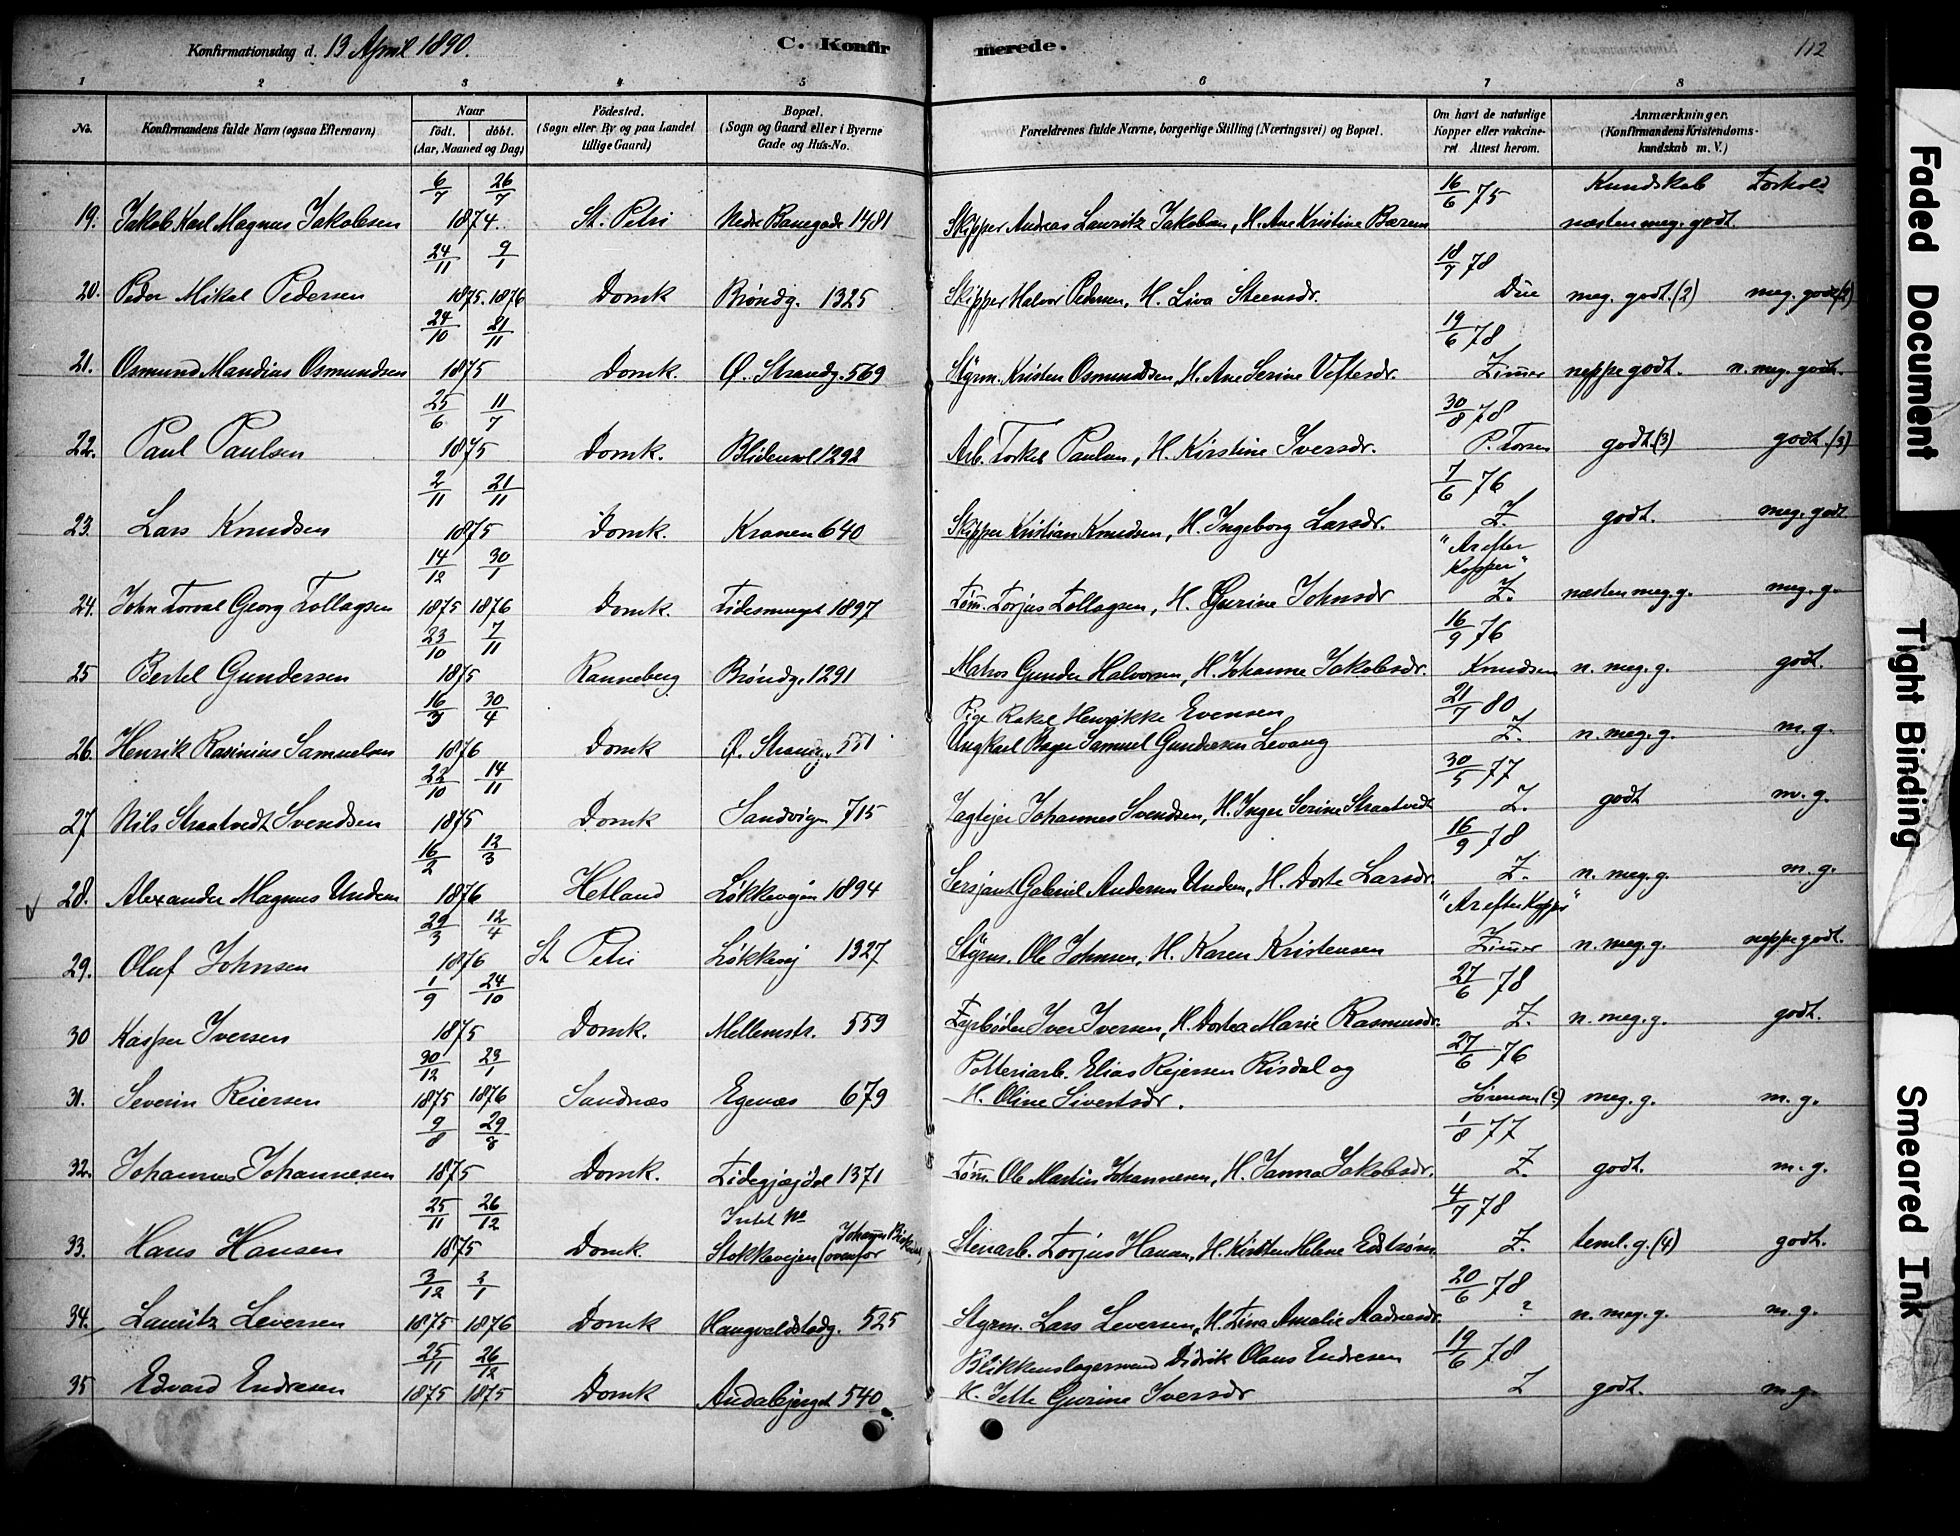 Konfirmationsdag d. 13 April 1890.
C. Konfirmerede.
112
1 2 3 4 5 6 7 8
No.
Konfirmandens fulde Navn (ogsaa Efternavn)
Naar
födt. döbt.
(Aar, Maaned og Dag)
Födested.
(Sogn eller By og paa Landet
tillige Gaard)
Bopæl.
(Sogn og Gaard eller i Byerne
Gade og Hus-No.
Forældrenes fulde Navne, borgerlige Stilling (Næringsvei) og Bopæl.
Om havt de naturlige
Kopper eller vakcine-
ret Attest herom.
Anmærkninger.
(Konfirmandens Kristendoms-
kundskab m. V.)
Kundskab Forhold
6/7 26/7 16/6 75
19. Jakob Karl Magnus Jakobsen 1874. St. Petri Nedre Banegade 1481 Skipper Andreas Lauritz Jakobsen, H. Ane Kristine Bærem næsten meg. godt.
24/11 9/1 18/7 78
20. Peder Mikal Pedersen 1875. 1876 Domk Brøndg. 1325 Skipper Halvor Pedersen, H. Liva Steensdr. Due meg. godt. (2) meg. godt (2)
24/10 21/11 19/6 78
21. Osmund Mandius Osmundsen 1875 Domk. Ø. Strandg. 569 Styrm. Kristen Osmundsen, H. Ane Serine Veftesdr. Zimer neppe godt. n. meg. godt.
25/6 11/7 30/8 78
22. Paul Paulsen 1875 Domk. Blidensol 1292 Arb. Torkel Paulsen, H. Kirstine Iversdr. P. Torsen godt. (3) godt. (3)
2/11 21/11 7/6 76
23. Lars Knudsen 1875 Domk. Kranen 640 Skipper Kristian Knudsen, H. Ingeborg Larsdr. Z. godt. meg. godt
14/12 30/1 "Ar efter Kopper"
24. John Torval Georg Tollagsen 1875 1876 Domk. Tidesmuget 1897 Tøm. Torjus Tollagsen, H. Gurine Johnsdr Z. næsten meg. g. meg. g.
23/10 7/11 16/9 76
25 Bertel Gundersen 1875 Ranneberg Brøndg. 1291 Matros Gunder Halvorsen, H. Johanne Jakobsdr. Knudsen n. meg. g. godt.
16/3 30/4 Pige Rakel Henrikke Evensen 21/7 80
26. Henrik Rasinius Samuelsen 1876 Domk Ø. Strandg. 551 Ungkarl Bager Samuel Gundersen Levang Z. n. meg. g. m. g.
22/10 14/11 30/5 77
27 Nils Straatvedt Svendsen 1875 Domk Sandvigen 715 Jagtejer Johannes Svendsen, H. Inger Serine Straatvedt Z. godt m. g.
16/2 12/3 16/9 78
28. Alexander Magnus Undem 1876 Hetland Løkkevejen 1894 Sersjant Gabriel Andersen Undem, H. Dorte Larsdr. Z. n. meg. g. m. g.
29/3 12/4 "Ar efter Kopper"
29. Oluf Johnsen 1876 St Petri Løkkevej 1327 Styrm. Ole Johnsen, H. Karen Kristensen Zimer n. meg. g. neppe godt.
1/9 24/10 27/6 78
30 Kasper Iversen 1875 Domk. Mellemstr. 559 Fyrbøder Iver Iversen, H. Dortea Marie Rasmusdr. Z. n. meg. g. godt.
30/12 23/1 Potteriarb. Elias Rejersen Risdal og 27/6 76
31. Severin Reiersen 1875 1876 Sandnæs Egenæs 679 H. Oline Sivertsdr. Sørensen (?) meg. g. m. g.
9/8 29/8 1/8 77
32. Johannes Johannesen 1875 Domk. Tidegjæjdet 1371 Tøm. Ole Martin Johannesen, H. Janna Jakobsdr. Z godt. m. g.
25/11 26/12 Intet No 4/7 78
33. Hans Hansen 1875 Domk. Stokkavejen (ovenfor Stenarb. Torjus Hansen, H. Kirsten Helene Edstrøm Z. teml. g. (4) godt.
3/12 2/1 20/6 78
34. Lauritz Leversen 1875 1876 Domk Haugvaldstadg. 525 Styrm. Lars Leversen, H. Tina Amalie Aadnesdr. ? n. meg. g. m. g.
25/11 26/12 Blikkenslagersvend Didrik Olaus Endresen 19/6 78
35 Edvard Endresen 1875 1875 Domk Audabjerget 540 H. Jette Gurine Iversdr Z godt. m. g.
Faded Document
Tight Binding
Smeared Ink